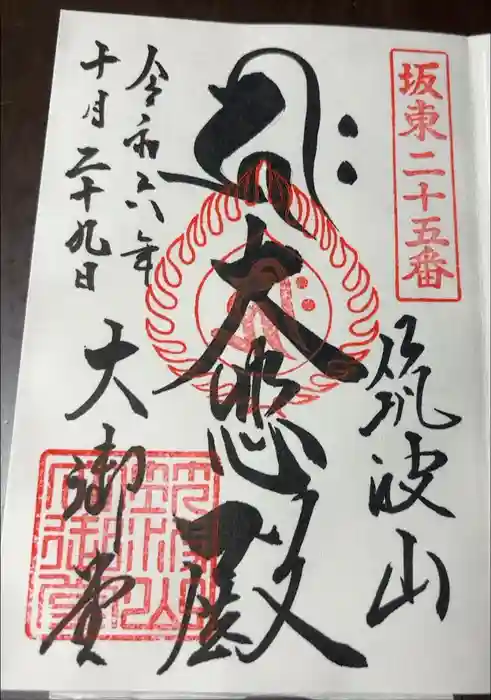 坂東二十五番
筑波山
大悲殿
令和六年
十月二十九日
大御堂
筑波山
大御堂